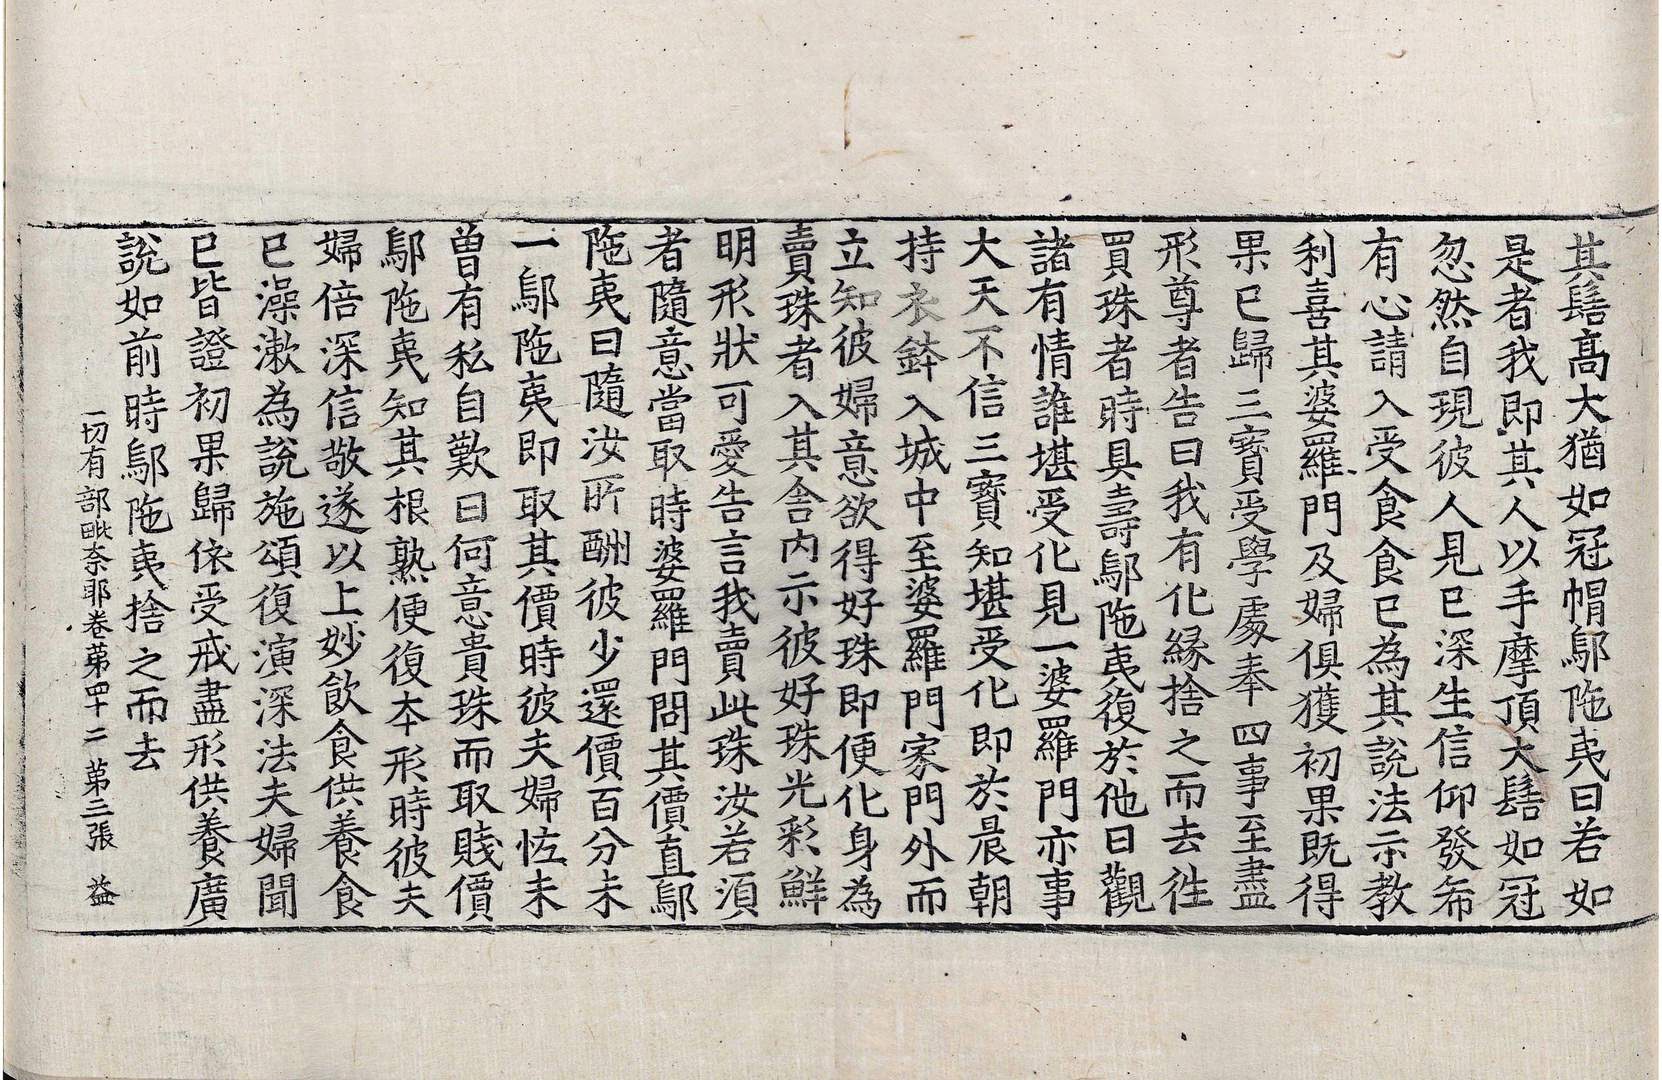 其髻高大猶如冠帽鄔陁夷曰若如
是者我即其人以手摩頂大髻如冠
忽然自現彼人見已深生信仰發希
有心請入受食食已為其說法示教
利喜其婆羅門及婦俱獲初果既得
果已歸三寶受學處奉四事至盡
形尊者告曰我有化緣捨之而去徃
買珠者時具壽鄔陁夷復於他日觀
諸有情誰堪受化見一婆羅門亦事
大天不信三寶知堪受化即於晨朝
持衣鉢入城中至婆羅門家門外而
立知彼婦意欲得好珠即便化身為
賣珠者入其舍内示彼好珠光彩鮮
明形狀可愛告言我賣此珠汝若須
者隨意當取時婆羅門問其價直鄔
陁夷曰隨汝所酬彼少還價百分未
一鄔陁夷即取其價時彼夫婦恠未
曽有私自歎曰何意貴珠而取賤價
鄔陁夷知其根熟便復本形時彼夫
婦倍深信敬遂以上妙飲食供養食
已澡漱為說施頌復演深法夫婦聞
已皆證初果歸依受戒盡形供養廣
說如前時鄔陁夷捨之而去
一切有部毗奈耶卷苐四十二 苐三張 益